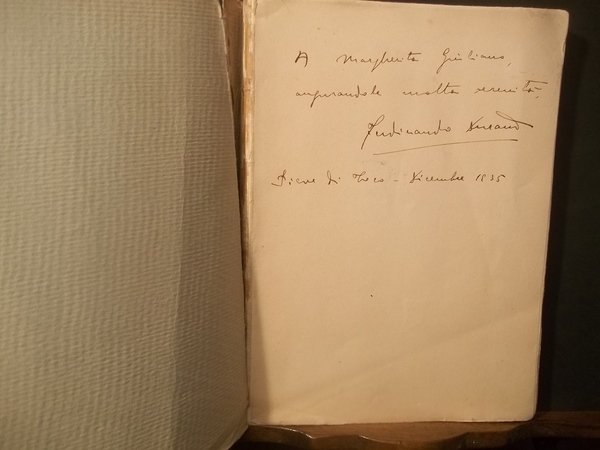 A Margherita Giuliano,
augurandole molta serenità,
Ferdinando Durand
Pieve di Teco - Dicembre 1935